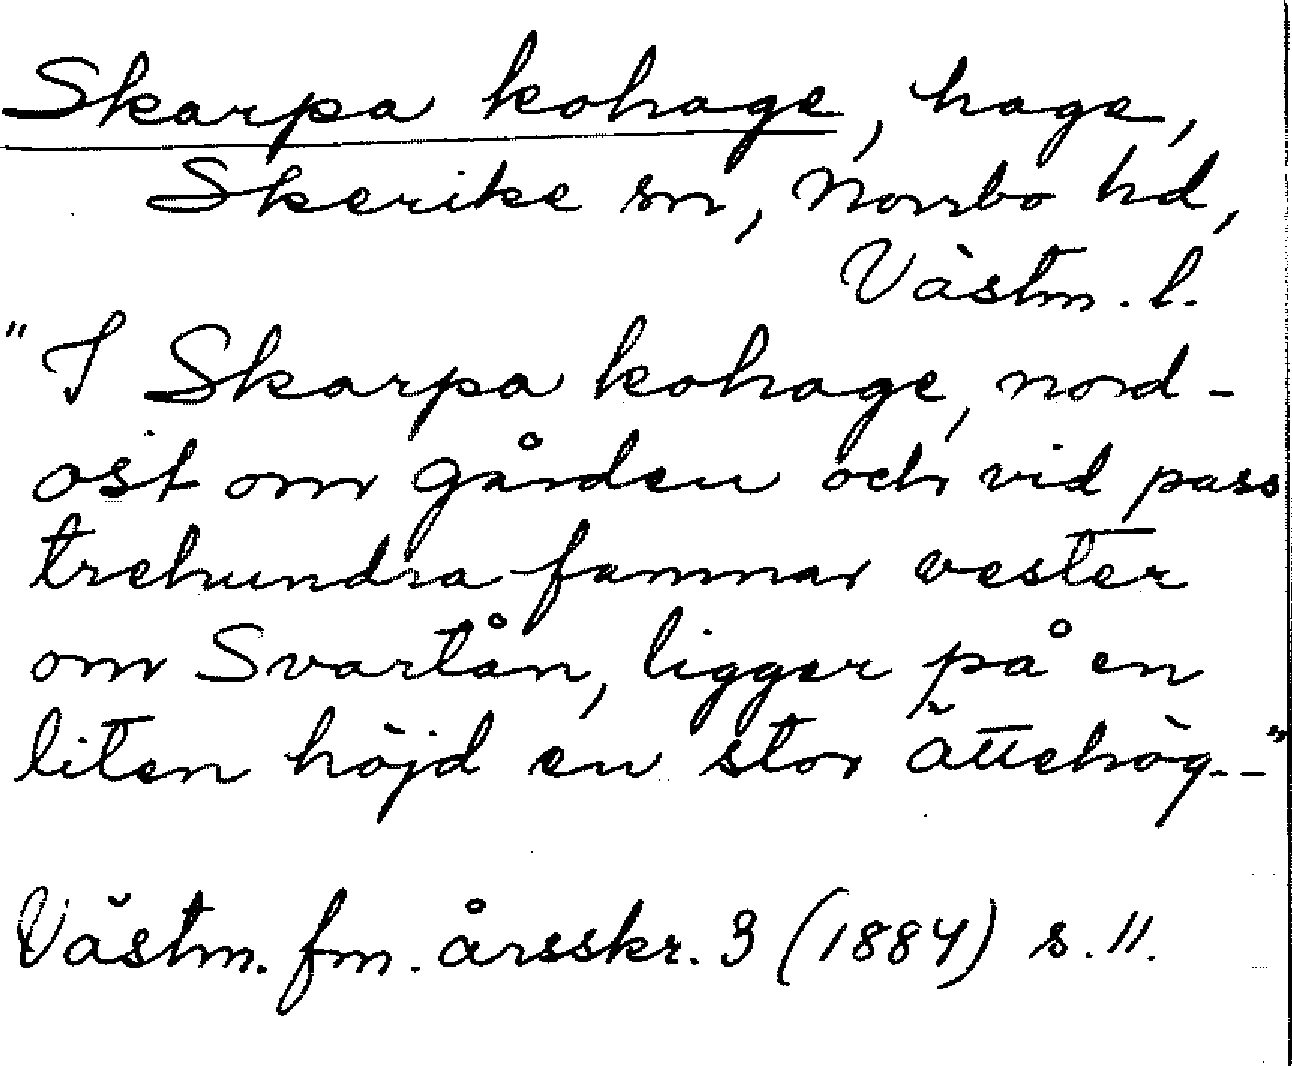 Skarpa kohage, hage,
Skerike sn, Norrbo hd,
Västm. l.
"I Skarpa kohage, nord-
ost om gården och vid pass
trehundra famnar vester
om Svartån, ligger på en
liten höjd en stor ättehög.--"
Västm. fm. årsskr. 3 (1884) s. 11.